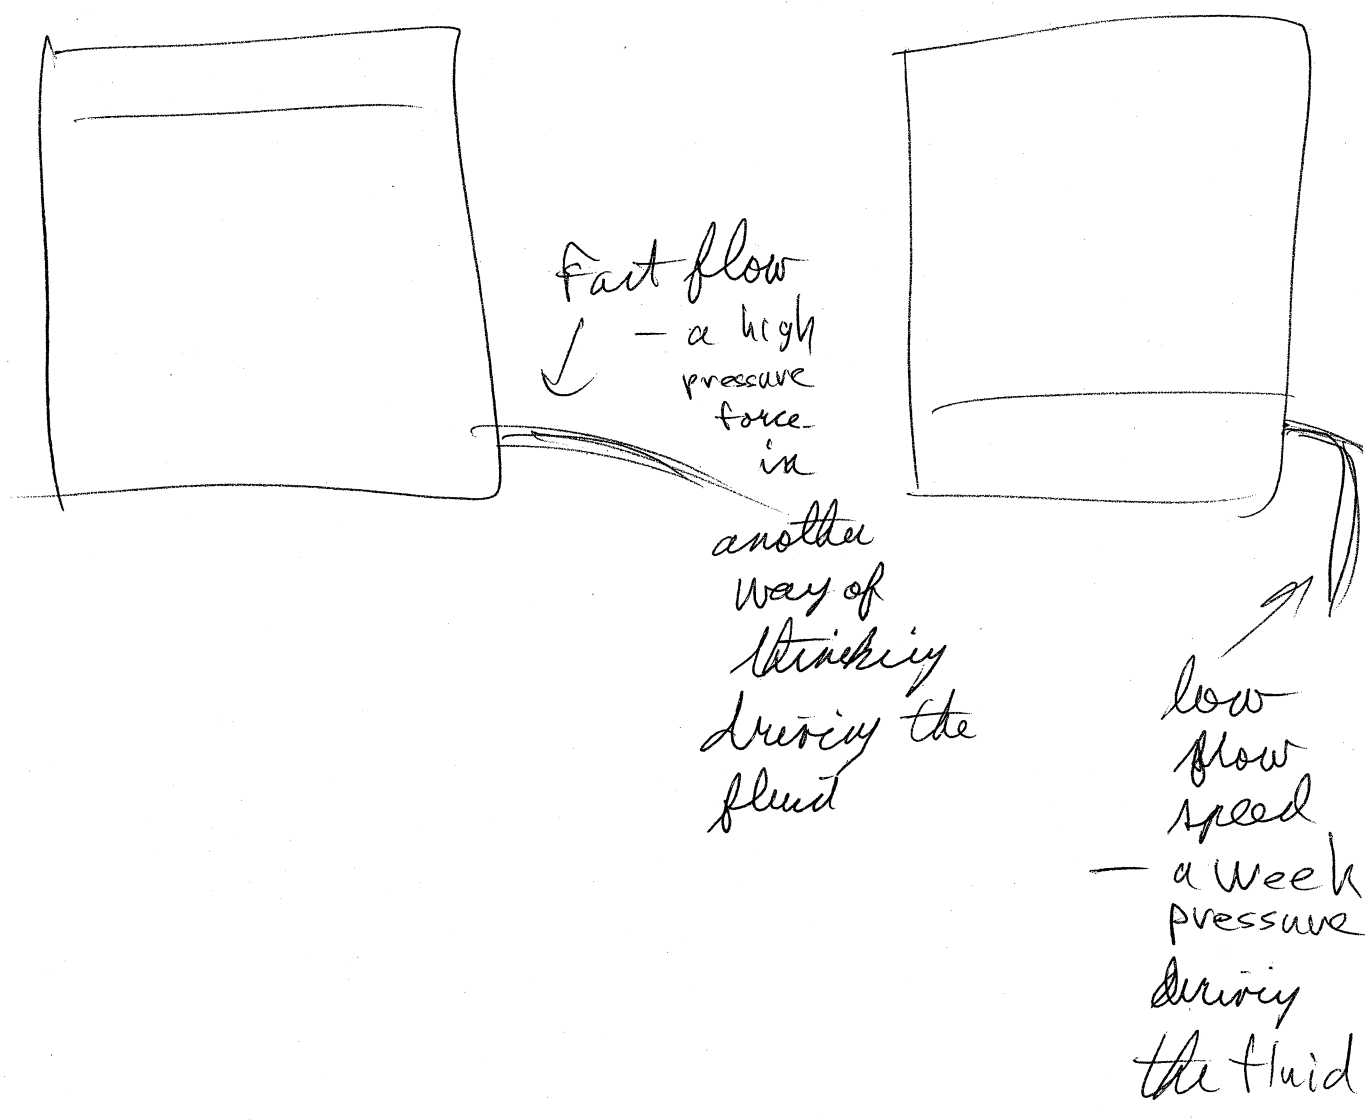 Fast flow
– a high
pressure
force
in
another
way of
thinking
driving the
fluid
low
flow
speed
– a week
pressure
driving
the fluid